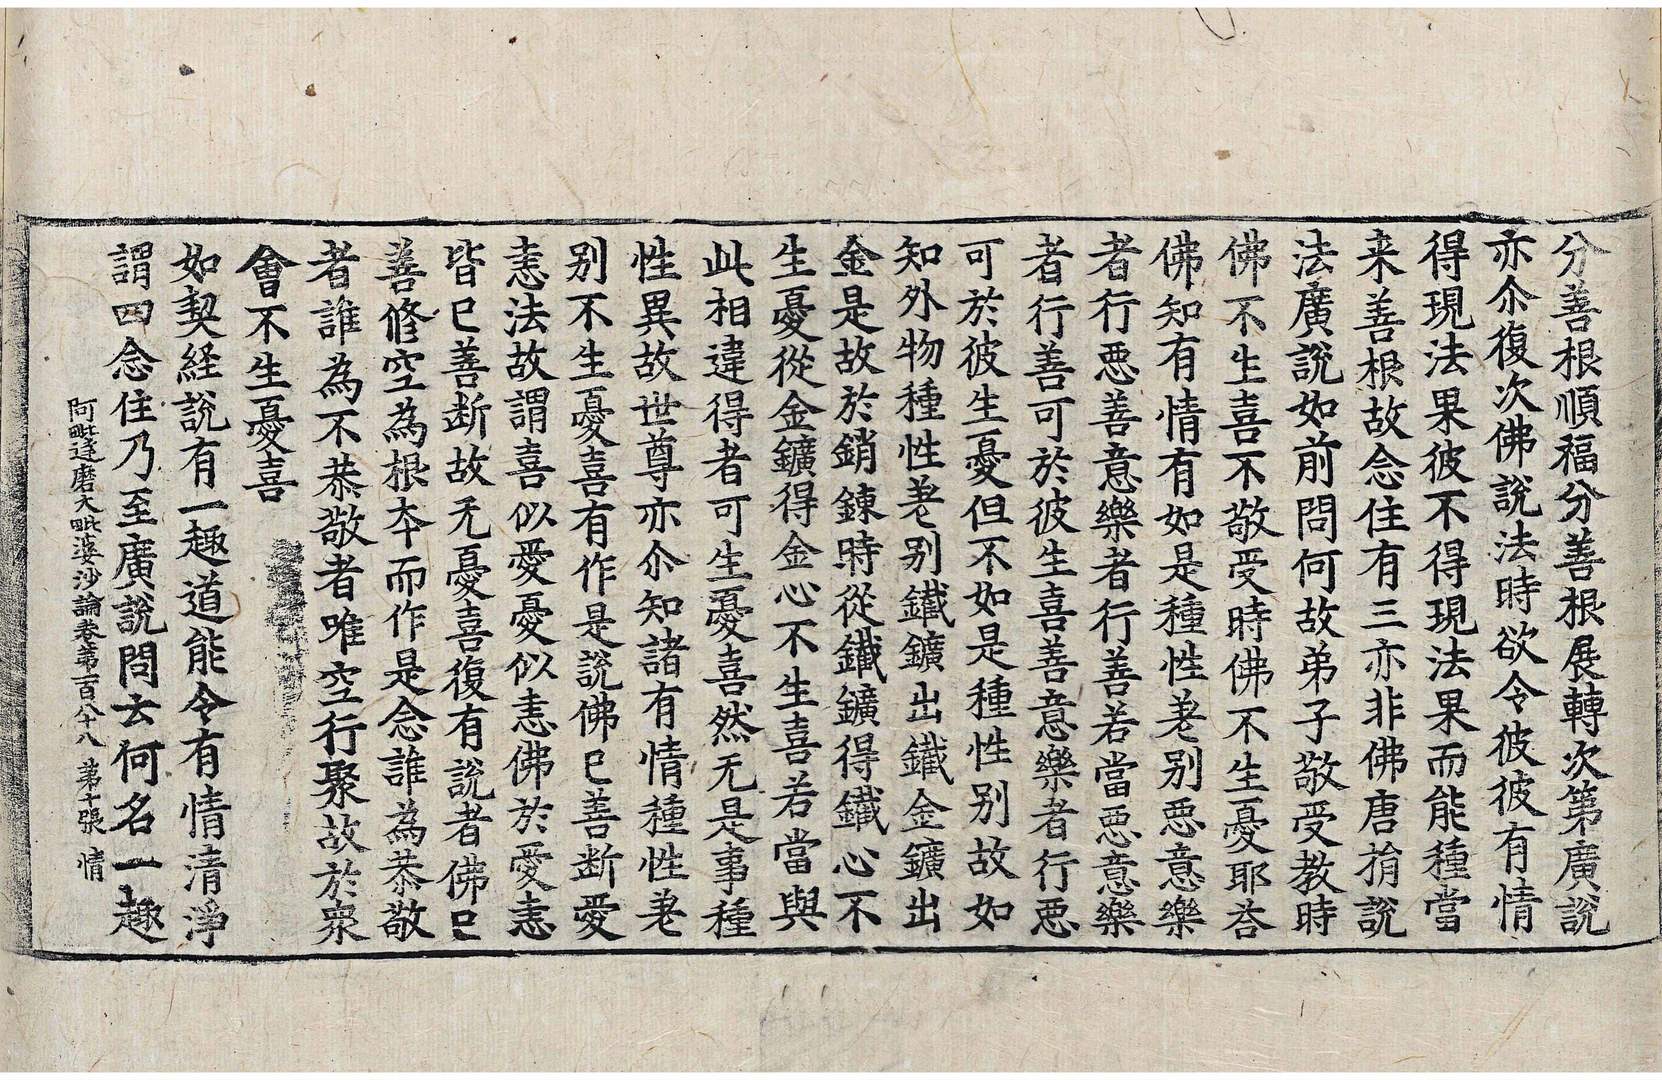 分善根順福分善根展轉次第廣說
亦尒復次佛說法時欲令彼彼有情
得現法果彼不得現法果而能種當
来善根故念住有三亦非佛唐捐說
法廣說如前問何故弟子敬受教時
佛不生喜不敬受時佛不生憂耶荅
佛知有情有如是種性差别惡意樂
者行惡善意樂者行善若當惡意樂
者行善可於彼生喜善意樂者行惡
可於彼生憂但不如是種性别故如
知外物種性差别鐵鑛出鐵金鑛出
金是故於銷鍊時從鐵鑛得鐵心不
生憂從金鑛得金心不生喜若當與
此相違得者可生憂喜然无是事種
性異故世尊亦尒知諸有情種性差
别不生憂喜有作是說佛已善断愛
恚法故謂喜似愛憂似恚佛於愛恚
皆已善断故无憂喜復有說者佛已
善修空為根夲而作是念誰為恭敬
者誰為不恭敬者唯空行聚故於衆
會不生憂喜
如契経說有一趣道能令有情清淨
謂四念住乃至廣說問云何名一趣
阿毗逹磨大毗婆沙論卷第百八十八　第十張　情